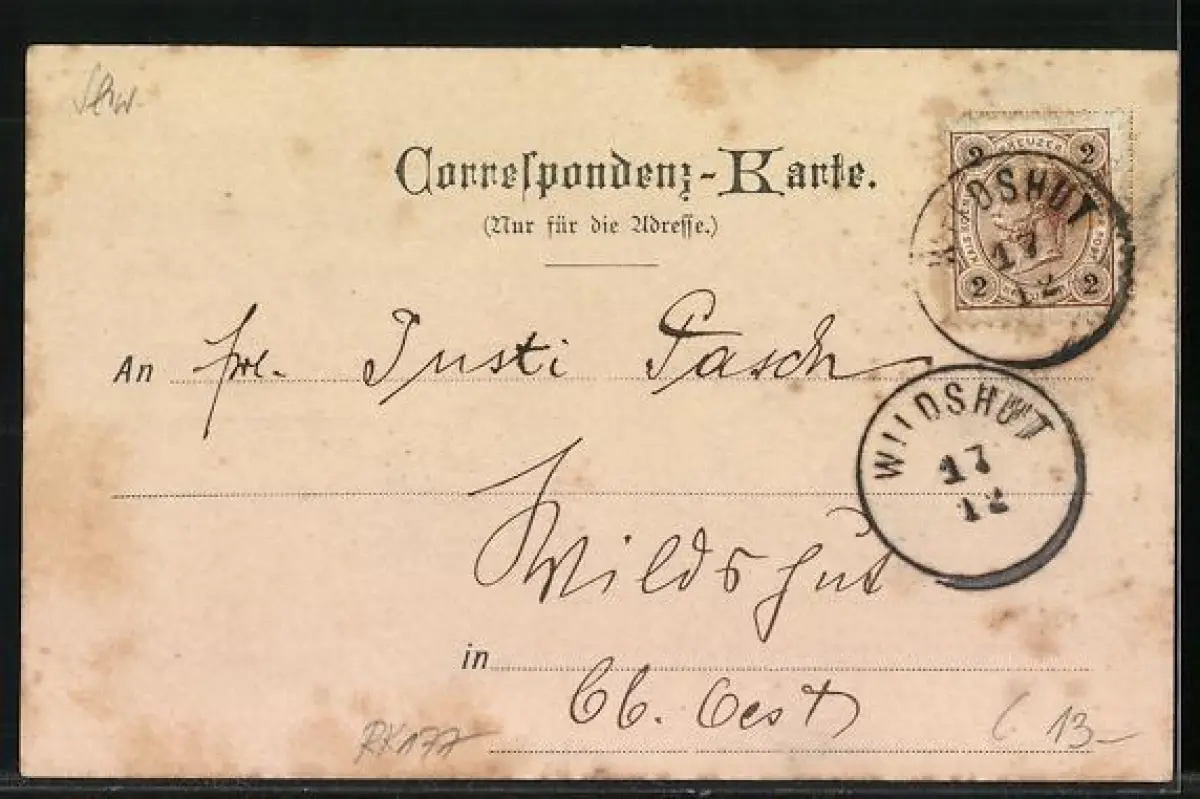 Correspondenz-Karte.
(Nur für die Adresse.)
2 KREUZER 2
WILDSHUT
17
12
2 2
An Frl. Justi Pasch
WILDSHUT
17
12
Wildshut
in
Ob. Oest
RK177
13-